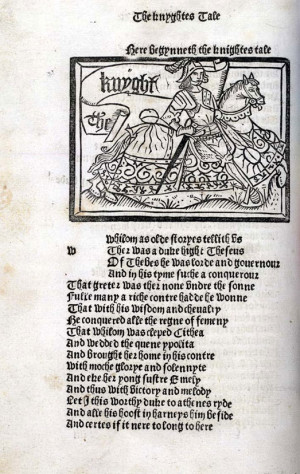 The knyghtes Tale
Here begynneth the knightes tale
knyght
the
whilom as olde storyes tellith vs
w Ther was a duke hight Theseus
Of Thebes he was lorde and gouernour
And in his tyme suche a conquerour
That greter was ther none vndre the sonne
Fulle many a riche contre had he wonne
That with his wisdom and cheualry
He conquered alle the regne of femeny
That whilom was cleped Cithea
And wedded the quene ypolita
And brought her home in his contre
With moche glorye and solennyte
And eke her yong sustre Emely
And thus with victory and melody
Let I this worthy duke to athenes ryde
And alle his hoost in harneys him be side
And certes if it nere to long to here